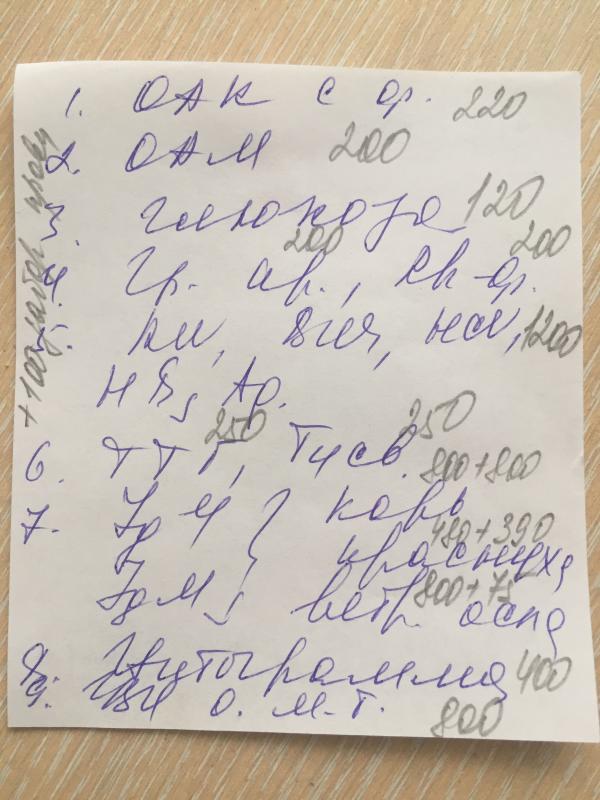 1. ОАК с ф. 220
2. ОАМ 200
3. глюкоза 120
200 200
4. Гр. кр., св-ф.
5. ВИЧ, HCV, 1200
HBs Ag.
250 250
6. ТТГ, Т4св.
800+800
7. Ig G } корь
480+390
краснуха
800+75
Ig M } ветр. оспа
8. 400
9. УЗИ о. м. т. 800
+100 забор крови